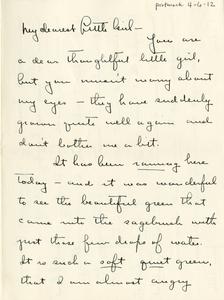 postmark 4-6-12
My dearest Little Girl—
You are
a dear thoughtful little girl,
but you mustn't worry about
my eyes – they have suddenly
grown quite well again and
don't bother me a bit.
It has been raining here
today – and it was wonderful
to see the beautiful green that
came into the sagebrush with
just those few drops of water.
It is such a soft quiet green,
that I am almost angry